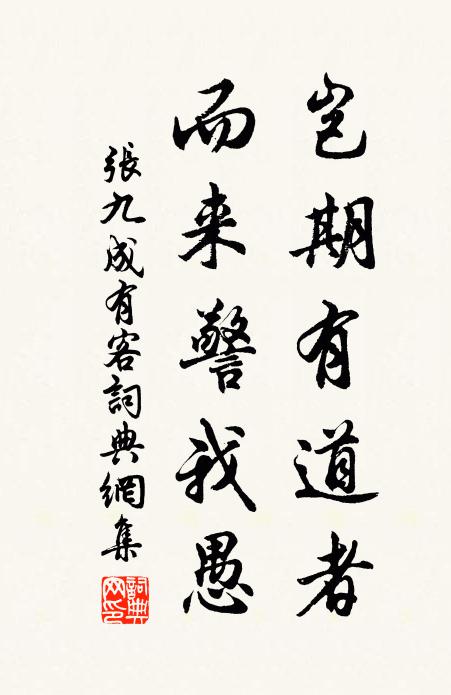 岂期有道者
而来警我愚
張九成有客詞典網集
詞典网印